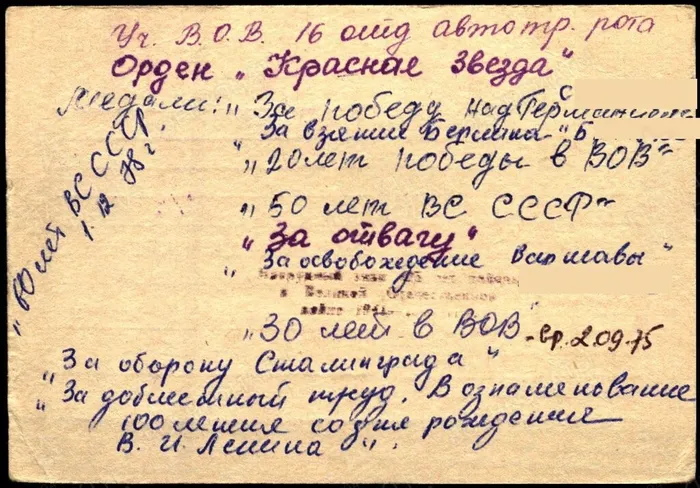 Уч. В.О.В. 16 отд автотр. рота
Орден „Красная Звезда"
Медали: „За победу над Германие
„За взятии Берлина" Б
„20 лет победы в ВОВ"
„50 лет ВС СССР"
„За отвагу"
„За освобождение Варшавы"
в Великой Отечественной
войне 1941
„30 лет в ВОВ" - вр. 2.09.75
„За оборону Сталинграда"
„За доблестный труд. В ознаменование
100 летия со дня рождения
В. И. Ленина".
„60 лет ВС СССР"
1. 12 78 г.